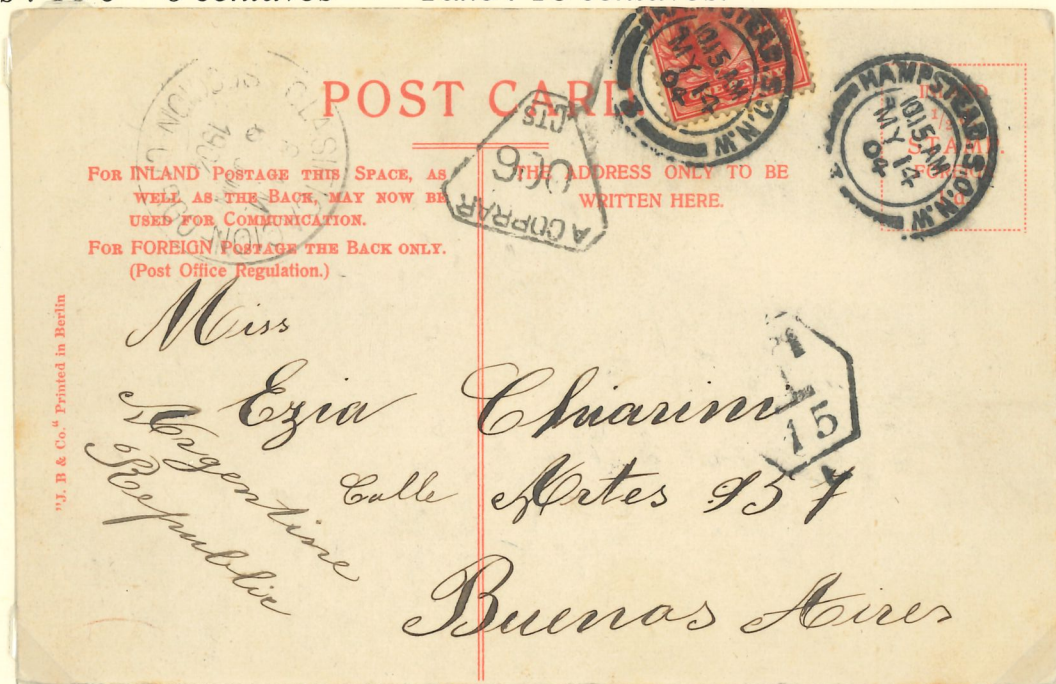 5 centavos
POST CARD.
FOR INLAND POSTAGE THIS SPACE, AS
WELL AS THE BACK, MAY NOW BE
USED FOR COMMUNICATION.
FOR FOREIGN POSTAGE THE BACK ONLY.
(Post Office Regulation.)
THE ADDRESS ONLY TO BE
WRITTEN HERE.
HAMPSTEAD.S.O.N.W
10.15 AM
MY 14
04
HAMPSTEAD.S.O.N.W
10.15 AM
MY 14
04
A COPRAR
CTS
INLAND
1/2
STAMP.
FOREIGN
"J. B & Co." Printed in Berlin
Miss
Ezia Chiarini
Calle Artes 957
Buenos Aires
Argentine
Republic
T
15